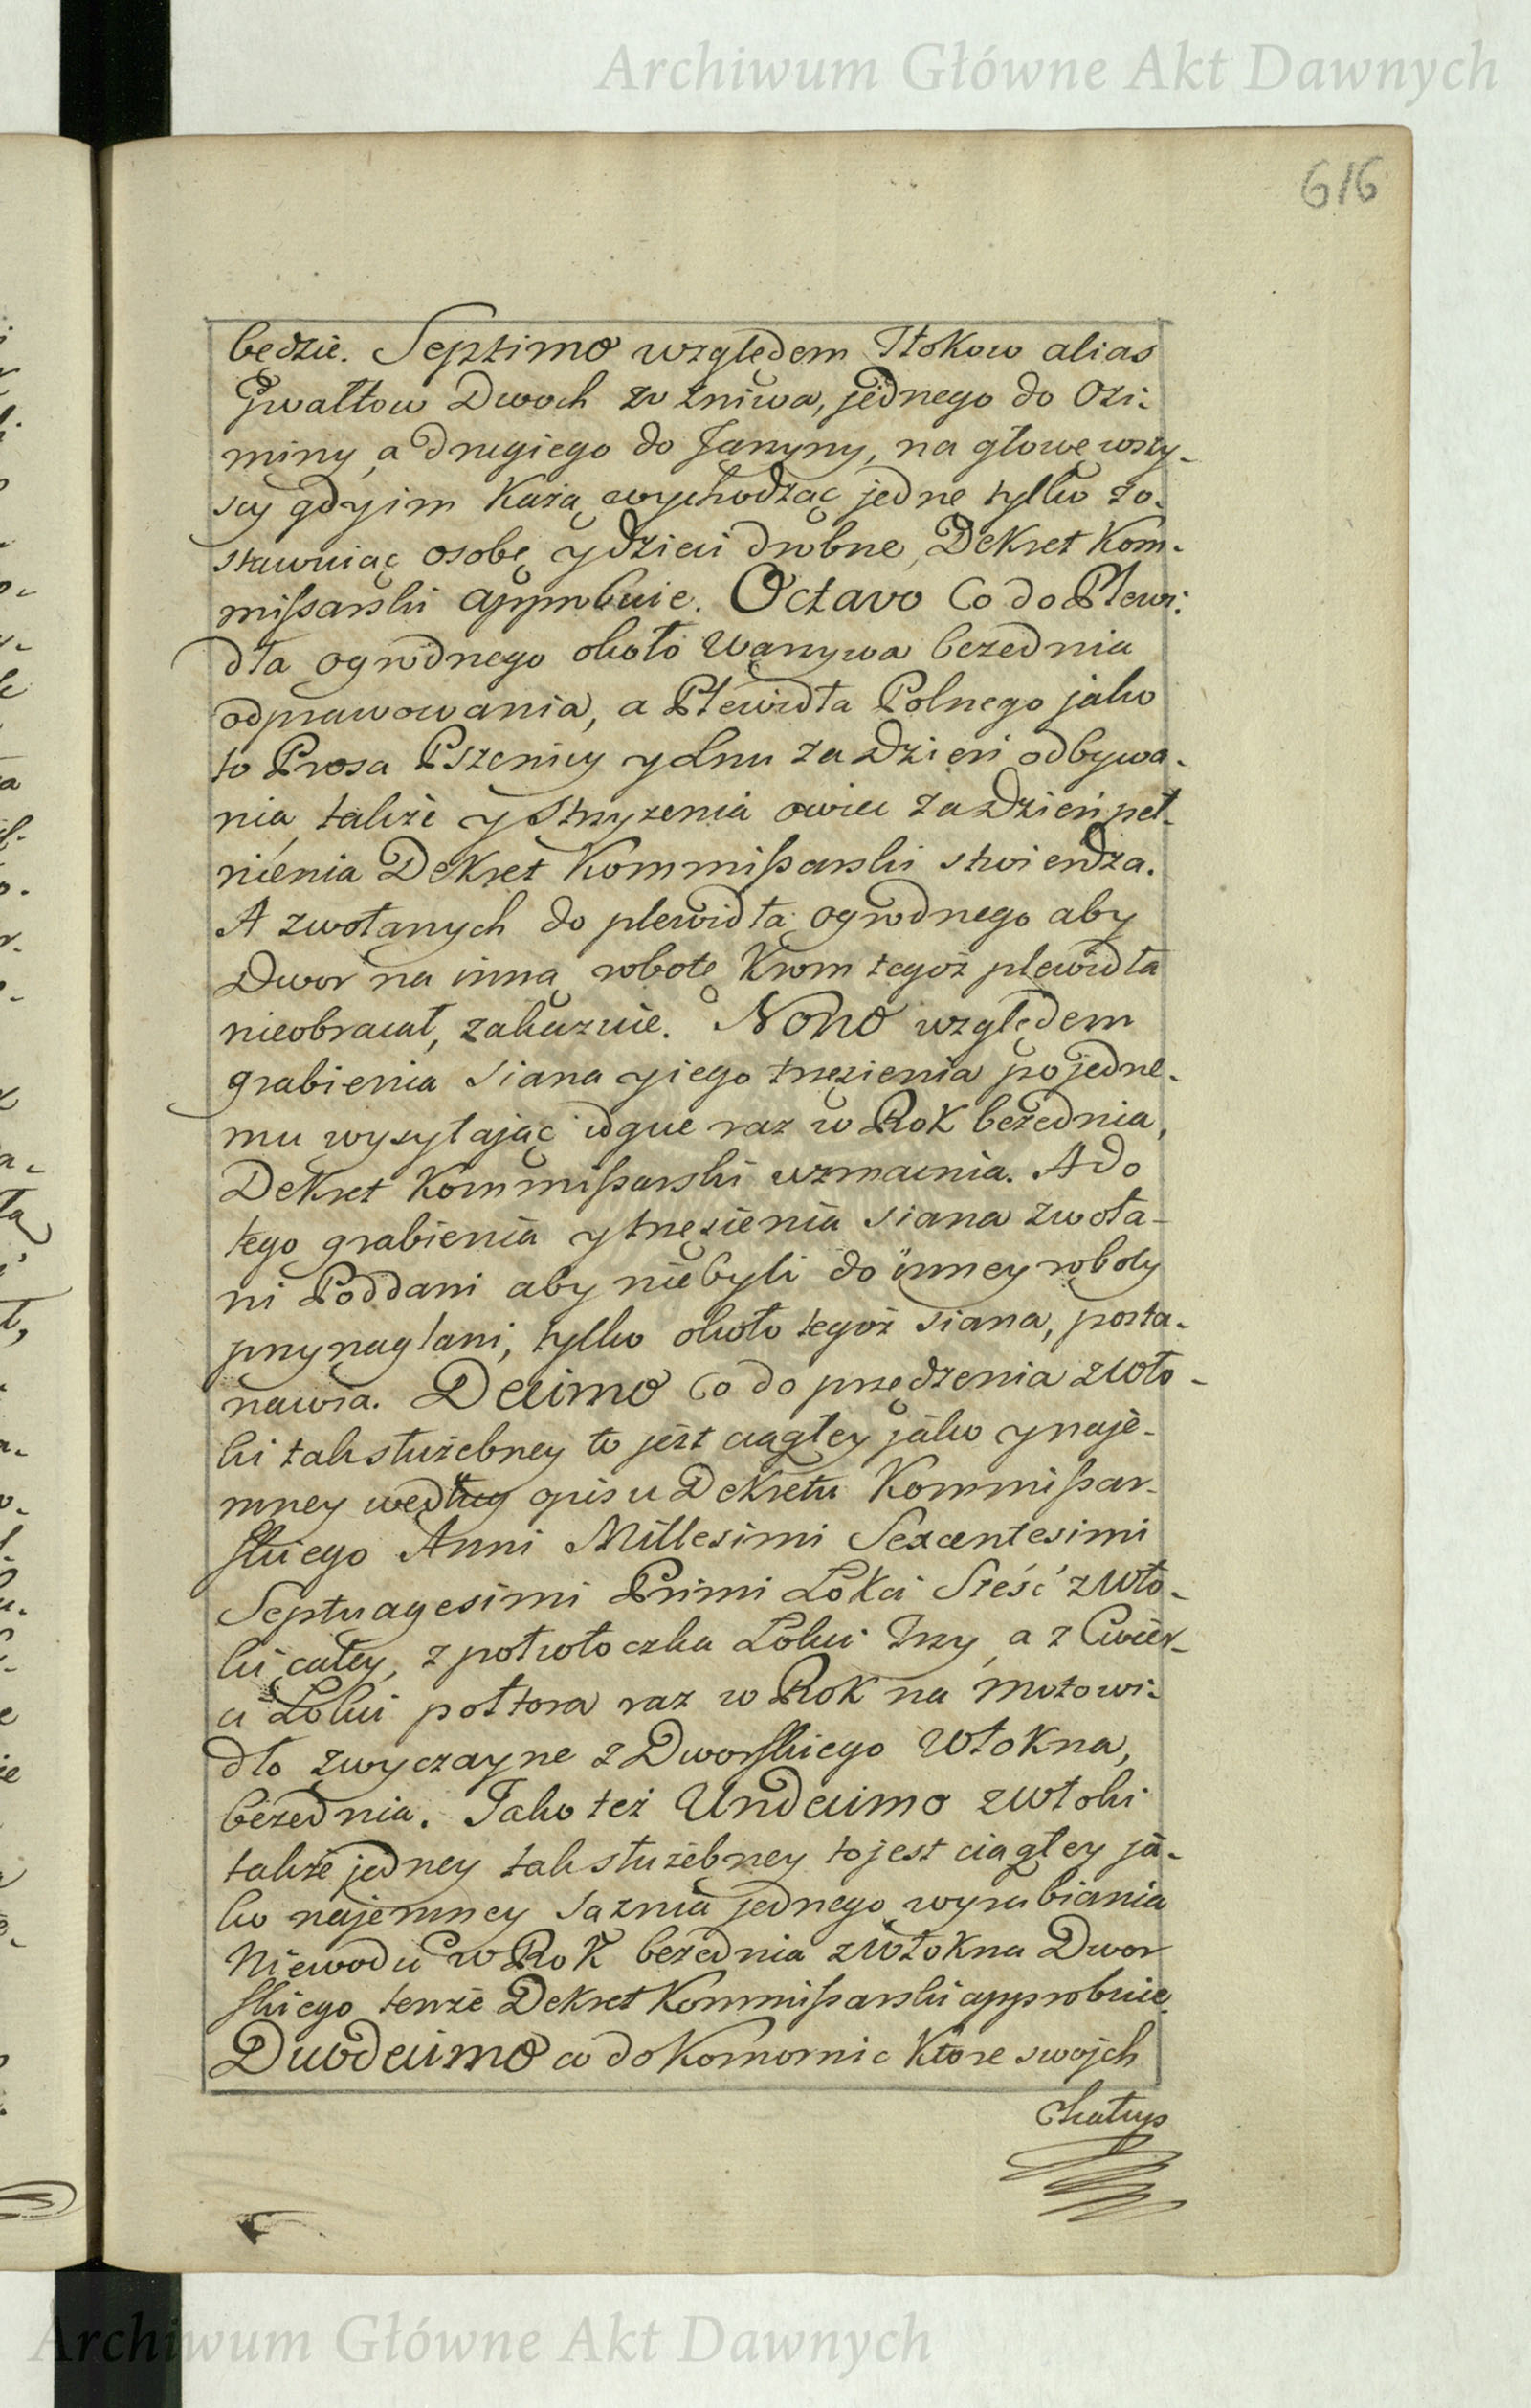 Archiwum Główne Akt Dawnych
616
będzie. Septimo względem Tłokow alias
Gwałtow Dwoch ze żniwa, jednego do Ozi-
miny, a drugiego do Jarzyny, na głowę wszy-
scy gdy im każą wychodząc jedne tylko zo-
stawuiąc osobę y dzieci drobne, Dekret Kom-
mißarski approbuie. Octavo Co do Plewi-
dła ogrodnego około Warzywa bezednia
odprawowania, a Plewidła Polnego jako
to Prosa Pszenicy y Lnu za Dzień odbywa-
nia, także y strzyżenia owiec za Dzień peł-
nienia Dekret Kommißarski stwierdza.
A zwołanych do plewidła ogrodnego aby
Dwor na inną robotę krom tegoż plewidła
nieobracał, zakazuie. Nono względem
grabienia siana y iego trzęsienia po jedne-
mu wysyłając idque raz w Rok bezednia,
Dekret Kommißarski wzmacnia. A do
tego grabienia y trzęsienia siana zwoła-
ni Poddani aby niebyli do inney roboty
przynaglani, tylko około tegoż siana, posta-
nawia. Decimo Co do przędzenia z wło-
ki tak służebney to jest ciągłey jako y naje-
mney według opisu Dekretu Kommißar-
skiego Anni Millesimi Sexcentesimi
Septuagesimi Primi Łokci Sześć z Wło-
ki całey, z połwłoczka Łokci Trzy, a z Cwier-
ci Łokci połtora raz w Rok na motowi-
dło zwyczayne z Dworskiego Włokna,
bezednia. Jako też Undecimo z Włoki
także jedney tak służebney to jest ciągłey ja-
ko najemney sążnia jednego wyrabiania
Niewodu w Rok bezednia z Włokna Dwor
skiego tenże Dekret Kommißarski approbuie.
Duodecimo co do Komornic Ktore swojch
Chałup
Archiwum Główne Akt Dawnych